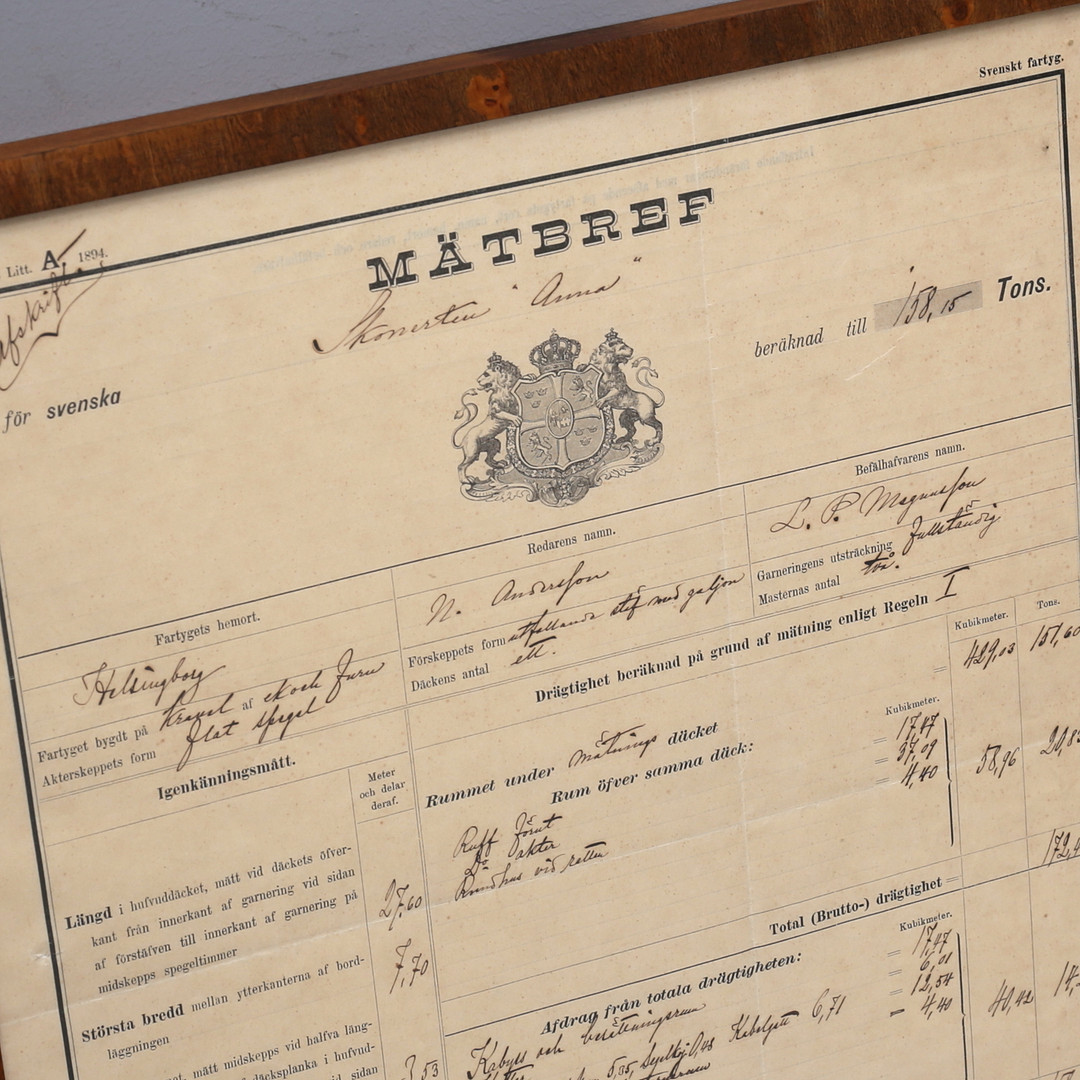 Svenskt fartyg.
Litt. A. 1894.
Afskrift.
MÄTBREF
för svenska
Skonerten "Anna"
beräknad till 158,15 Tons.
Fartygets hemort.
Helsingborg
Fartyget bygdt på Kravel af ek och furu
Akterskeppets form flat spegel
Redarens namn.
N. Andersson
Förskeppets form utfallande stäf med galjon
Däckens antal ett.
Befälhafvarens namn.
L. P. Magnusson
Garneringens utsträckning Fullständig
Masternas antal två.
Igenkänningsmått.
Meter
och delar
deraf.
Längd i hufvuddäcket, mätt vid däckets öfver-
kant från innerkant af garnering vid sidan
af förstäfven till innerkant af garnering på
midskepps spegeltimmer 27,60
Största bredd mellan ytterkanterna af bord-
läggningen 7,70
mätt midskepps vid halfva läng-
däcksplanka i hufvud-
vid sidan 3,53
Drägtighet beräknad på grund af mätning enligt Regeln I
Kubikmeter.
Tons.
Rummet under mätnings däcket = 429,03 151,60
Rum öfver samma däck:
Kubikmeter.
Ruff förut = 17,47
Do akter = 37,09
Rundhus vid ratten = 4,40
58,96 20,8
172,4
Total (Brutto-) drägtighet =
Afdrag från totala drägtigheten:
Kubikmeter.
Kabyss och besättningsrum = 17,47
= 6,01
Kabelgatt 6,71 = 12,54
= 4,40
40,42 14,